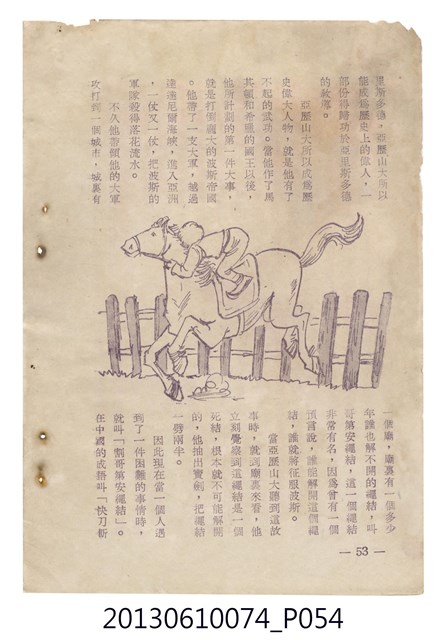 里斯多德，亞歷山大所以
能成爲歷史上的偉人，一
部份得歸功於亞里斯多德
的敎導。
亞歷山大所以成爲歷
史偉大人物，就是他有了
不起的武功。當他作了馬
其頓和希臘的國王以後，
他所計劃的第一件大事，
就是打倒龐大的波斯帝國
。他帶了一支大軍，越過
達達尼爾海峽，進入亞洲
，一仗又一仗，把波斯的
軍隊殺得落花流水。
不久他帶領他的大軍
攻打到一個城市，城裏有
一個廟，廟裏有一個多少
年誰也解不開的繩結，叫
哥第安繩結，這一個繩結
非常有名，因爲曾有一個
預言說，誰能解開這個繩
結，誰就將征服波斯。
當亞歷山大聽到這故
事時，就到廟裏來看，他
立刻覺察到這繩結是一個
死結，根本就不可能解開
的，他抽出寶劍，把繩結
一劈兩半。
因此現在當一個人遇
到了一件困難的事情時，
就叫「割哥第安繩結」。
在中國的成語叫「快刀斬
— 53 —
20130610074_P054